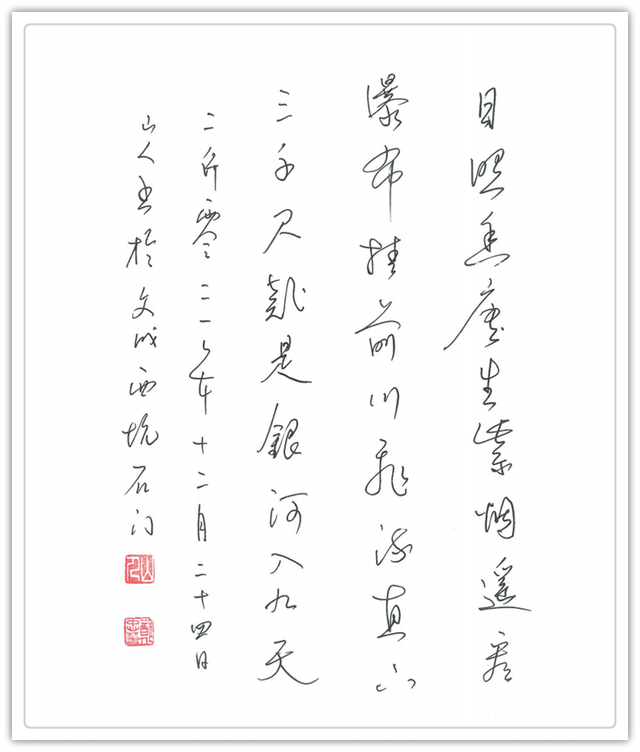 日照香廬生紫烟遥看
瀑布挂前川飛流直下
三千尺疑是銀河入九天
二仟零二一年十二月二十四日
山人书於文成西坑石门